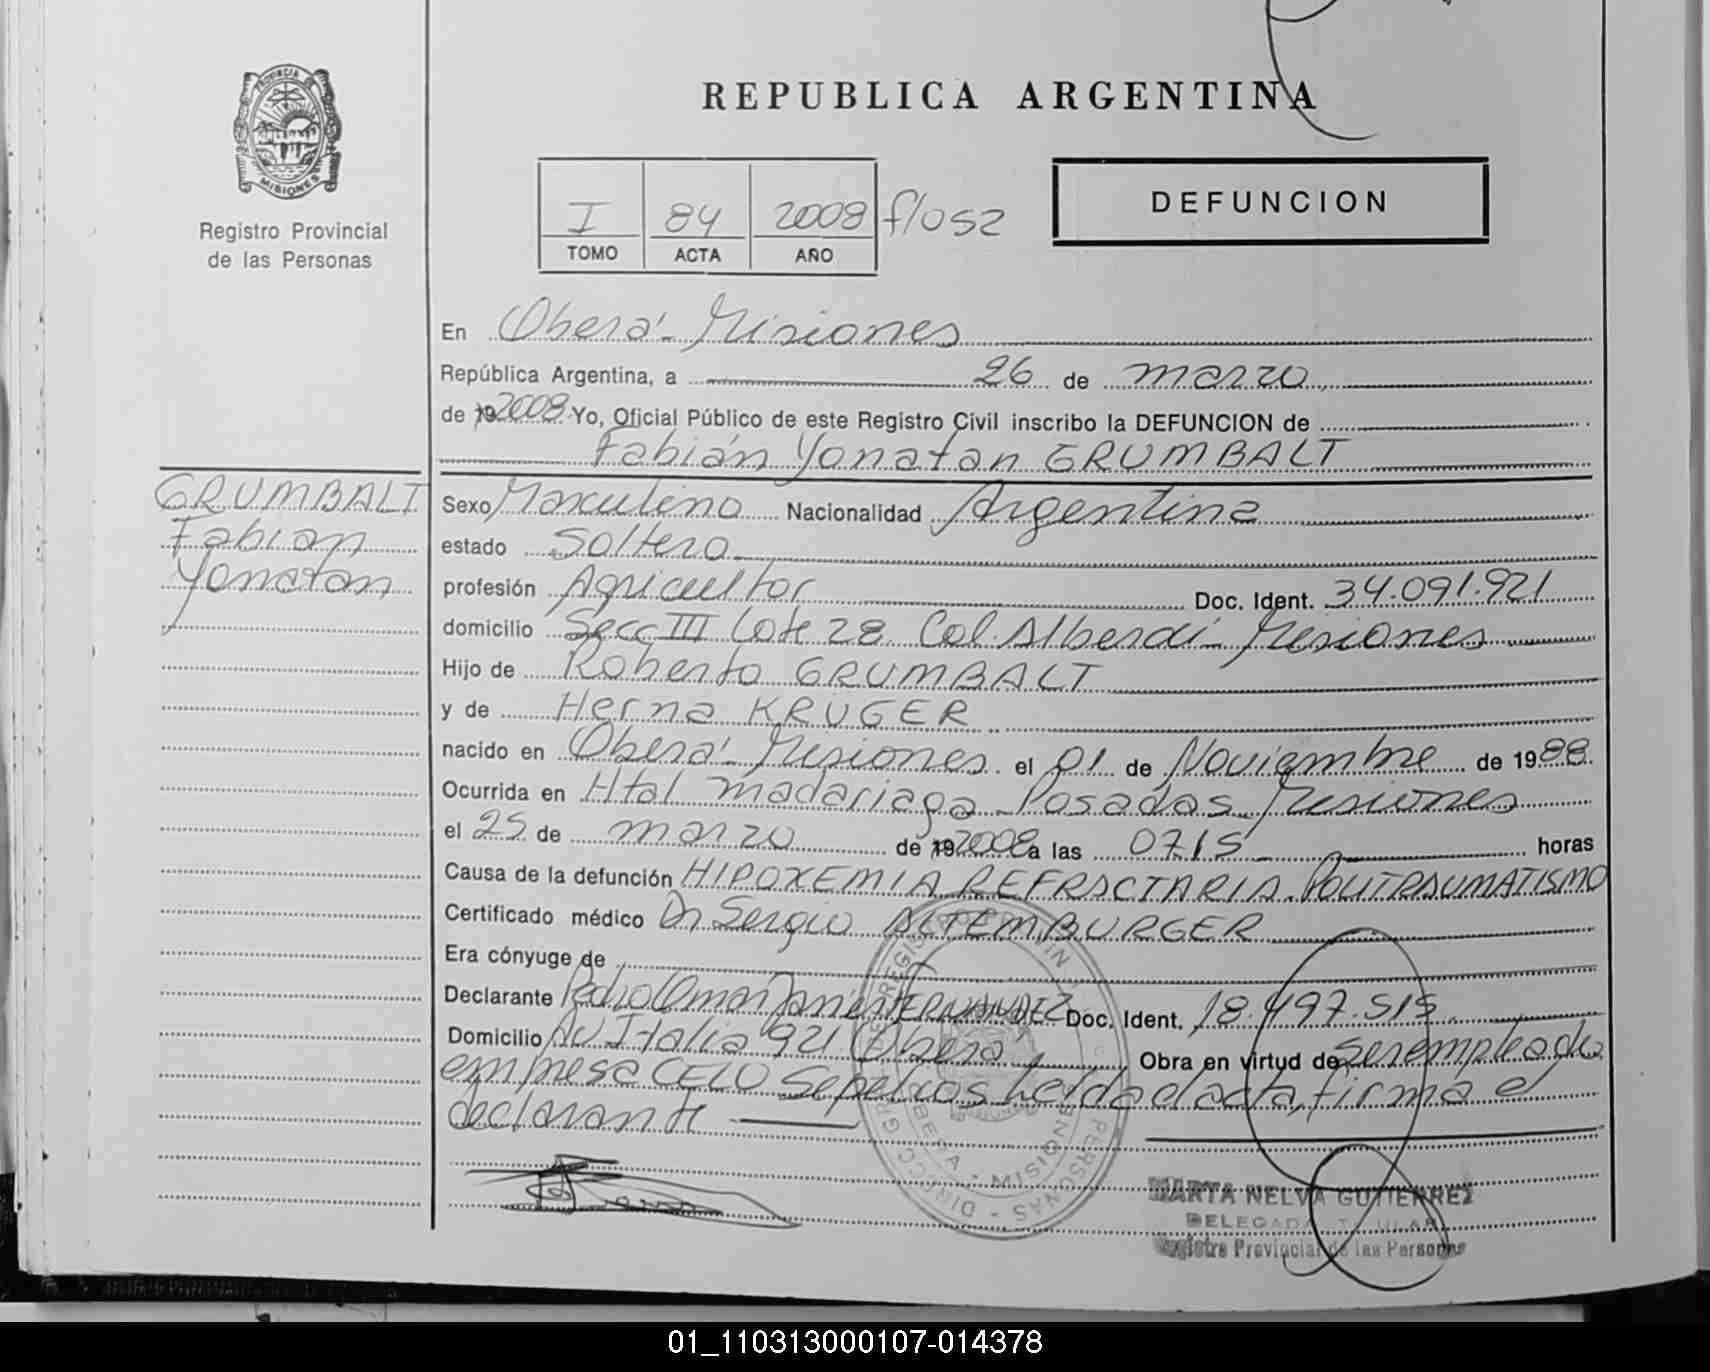 PROVINCIA DE
MISIONES
Registro Provincial
de las Personas
REPUBLICA ARGENTINA
I 84 2008 f/052
TOMO ACTA AÑO
DEFUNCION
En Oberá - Misiones
República Argentina, a 26 de marzo
de 19 2008 Yo, Oficial Público de este Registro Civil inscribo la DEFUNCION de
Fabián Yonatan GRUMBALT
GRUMBALT
Fabian
Yonatan
Sexo Masculino Nacionalidad Argentina
estado Soltero
profesión Agricultor Doc. Ident. 34.091.921
domicilio Secc III Lote 28 Col. Alberdi - Misiones
Hijo de Roberto GRUMBALT
y de Herna KRUGER
nacido en Oberá - Misiones el 01 de Noviembre de 1988
Ocurrida en Htal Madariaga - Posadas Misiones
el 25 de marzo de 19 2008 a las 0715 horas
Causa de la defunción HIPOXEMIA REFRACTARIA. POLITRAUMATISMO
Certificado médico Dr Sergio ALTEMBURGER
Era cónyuge de
Declarante Pedro Omar Javier FERNANDEZ Doc. Ident. 18.497.515
Domicilio Av Italia 921 Oberá Obra en virtud de ser empleado
empresa CELO Sepelios leída el acta, firma el
declarante
MARTA NELVA GUTIERREZ
DELEGADA TITULAR
Registro Provincial de las Personas
01_110313000107-014378